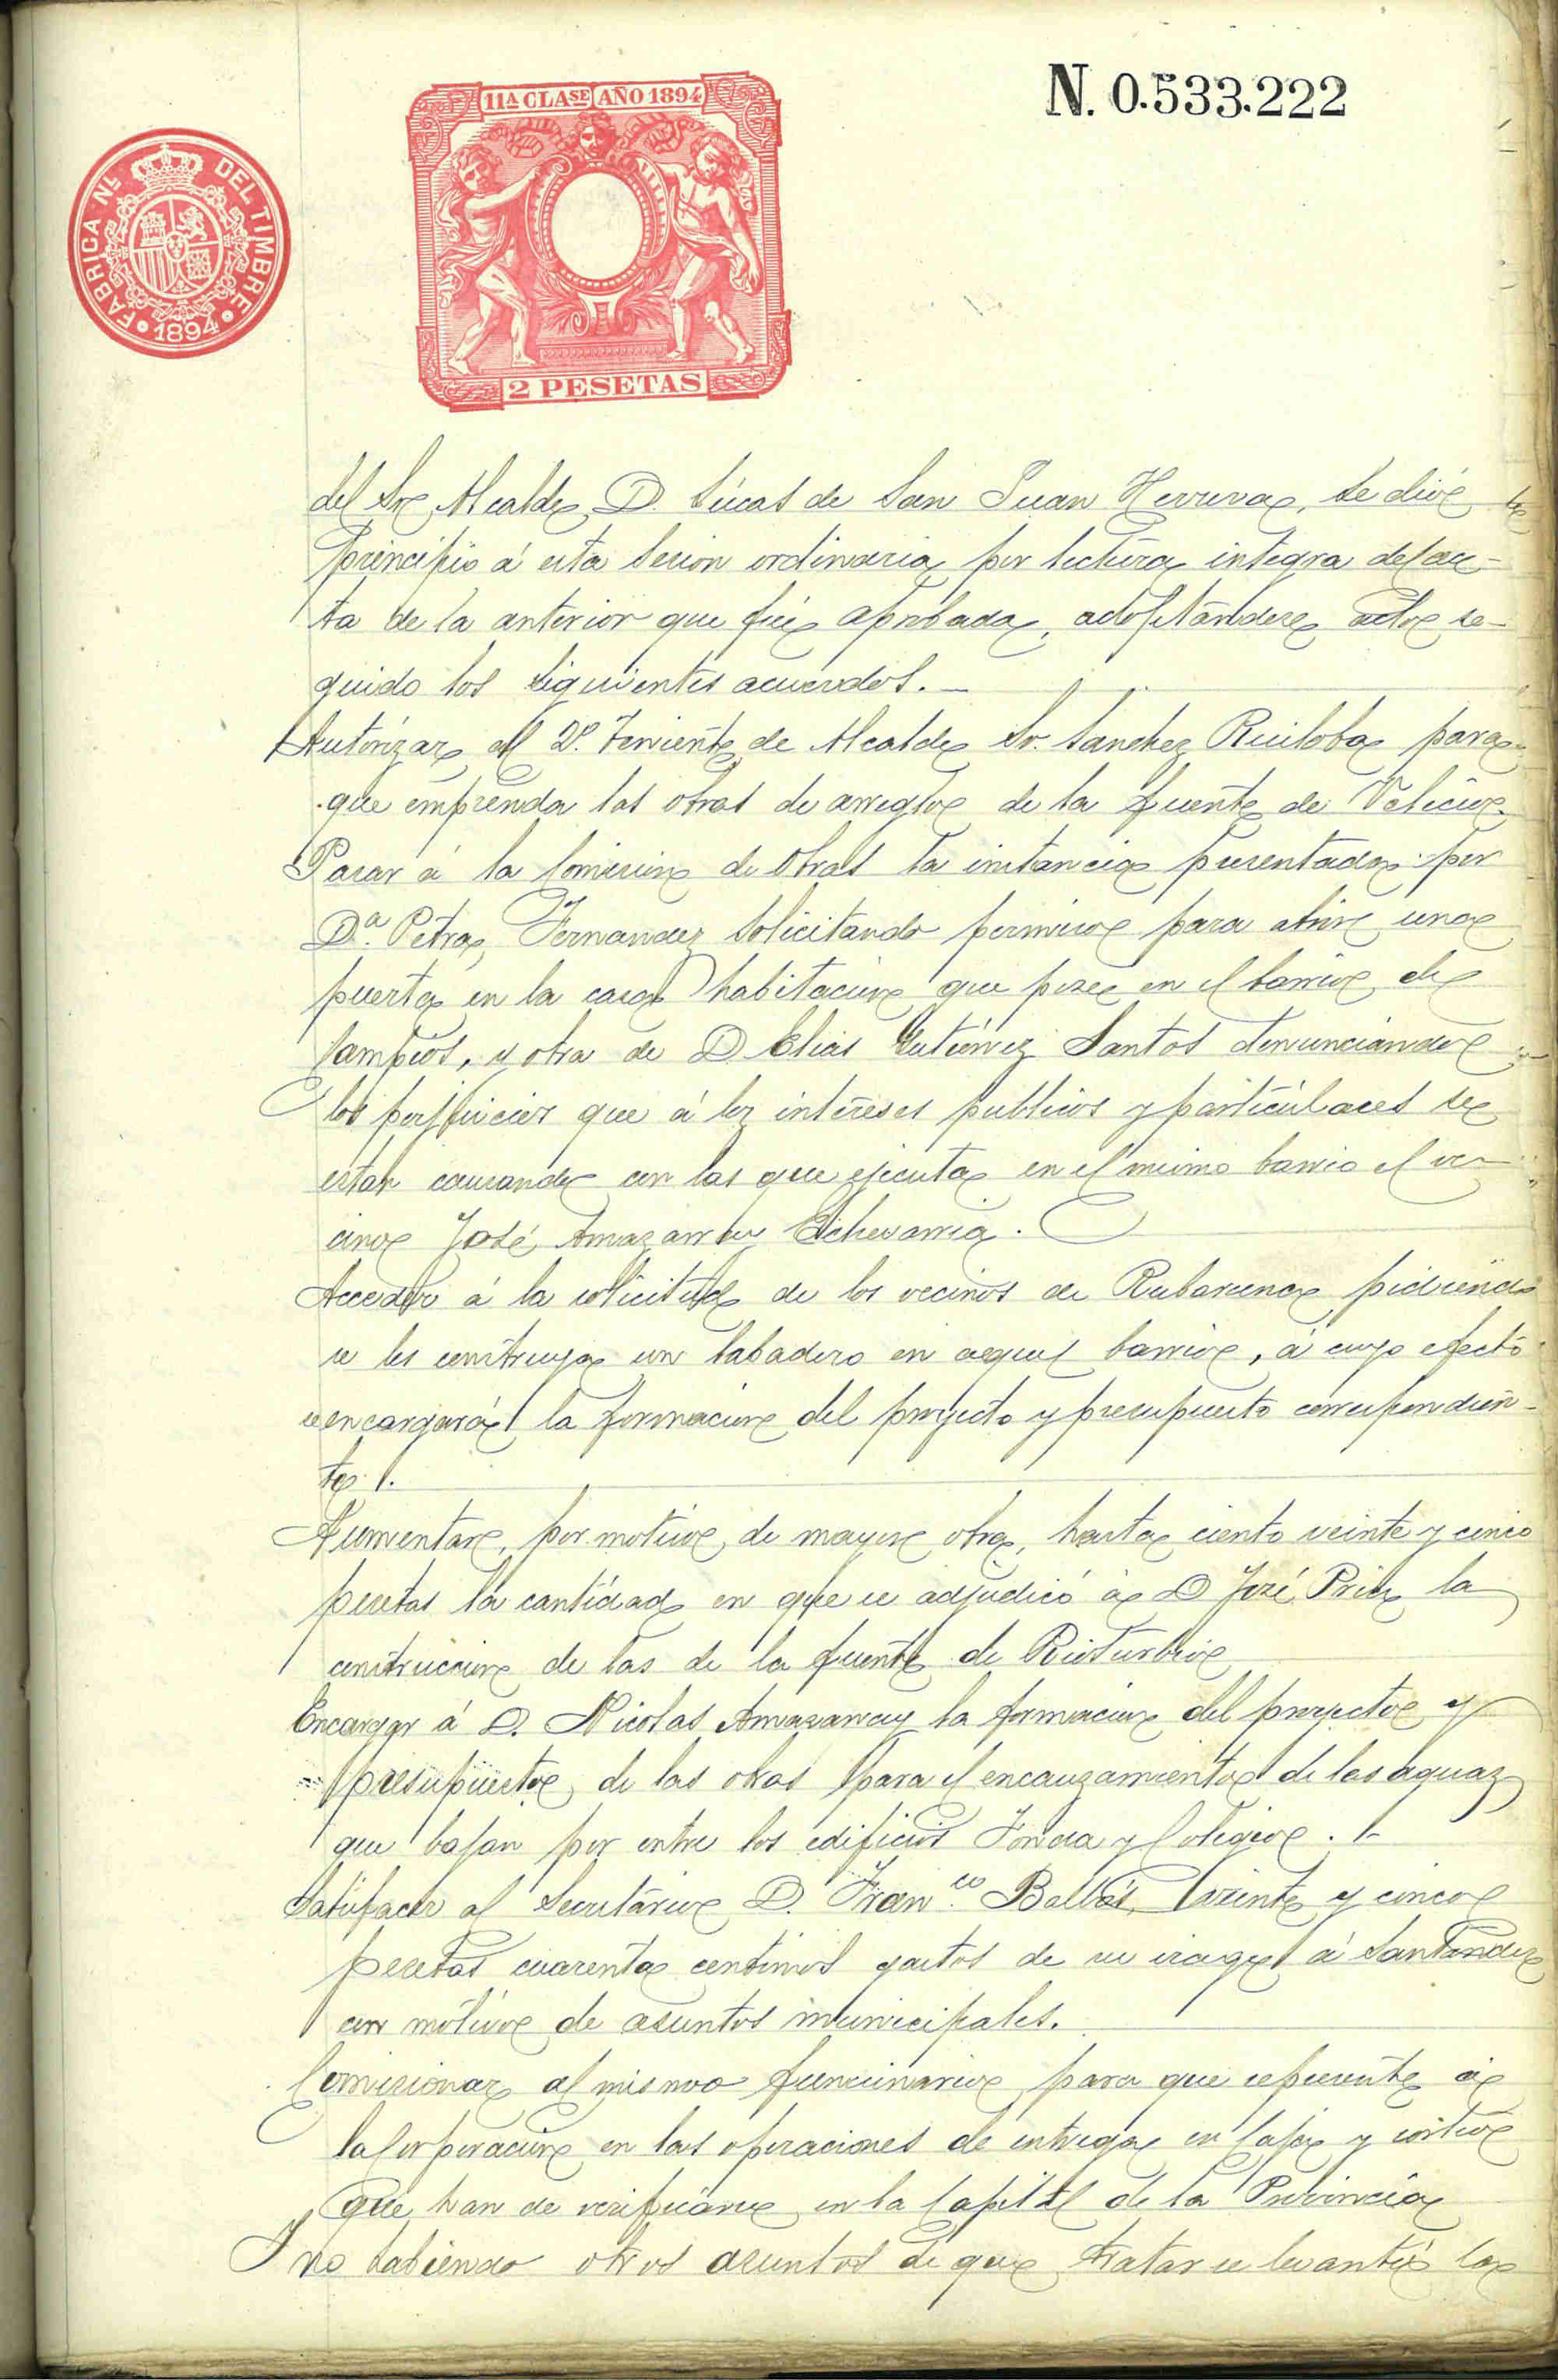 N. 0.533.222
11A CLASE AÑO 1894
FABRICA NL DEL TIMBRE
1894
2 PESETAS
del Sr Alcalde D. Lúcas de San Juan Herrera, se dió
principio á esta sesion ordinaria por lectura integra del ac-
ta de la anterior que fué aprobada, adoptándose acto se-
guido los siguientes acuerdos.
Autorizar al 2º Teniente de Alcalde Sr. Sanchez Ruiloba para
que emprenda las obras de arreglo de la fuente de Velecio.
Pasar á la Comision de Obras la instancia presentada por
Dª Petra Fernandez solicitando permiso para abrir una
puerta en la casa habitacion que posee en el barrio de
Campíos, y otra de D Elias Gutierrez Santos denunciando
los perjuicios que á los intereses publicos y particulares se
estan causando con las que ejecuta en el mismo barrio el ve-
cino José Amazarray Echevarria.
Acceder á la solicitud de los vecinos de Rubarcena pidiendo
se les construya un labadero en aquel barrio, á cuyo efecto
se encargará la formacion del proyecto y presupuesto correspondien-
te.
Aumentar, por motivo de mayor obra, hasta ciento veinte y cinco
pesetas la cantidad en que se adjudicó á D José Prio la
construccion de las de la fuente de Rioturbio
Encargar á D. Nicolas Amazarray la formacion del proyecto y
presupuesto de las obras para el encauzamiento de las aguas
que bajan por entre los edificios Fonda y Colegio.
Satisfacer al Secretario D. Franco Balbás veinte y cinco
pesetas cuarenta centimos gastos de su viage á Santander
con motivo de asuntos municipales.
Comisionar al mismo funcionario para que represente á
la Corporacion en las operaciones de entrega en Caja y sorteo
que han de verificarse en la Capital de la Provincia
Y no habiendo otros asuntos de que tratar se levantó la